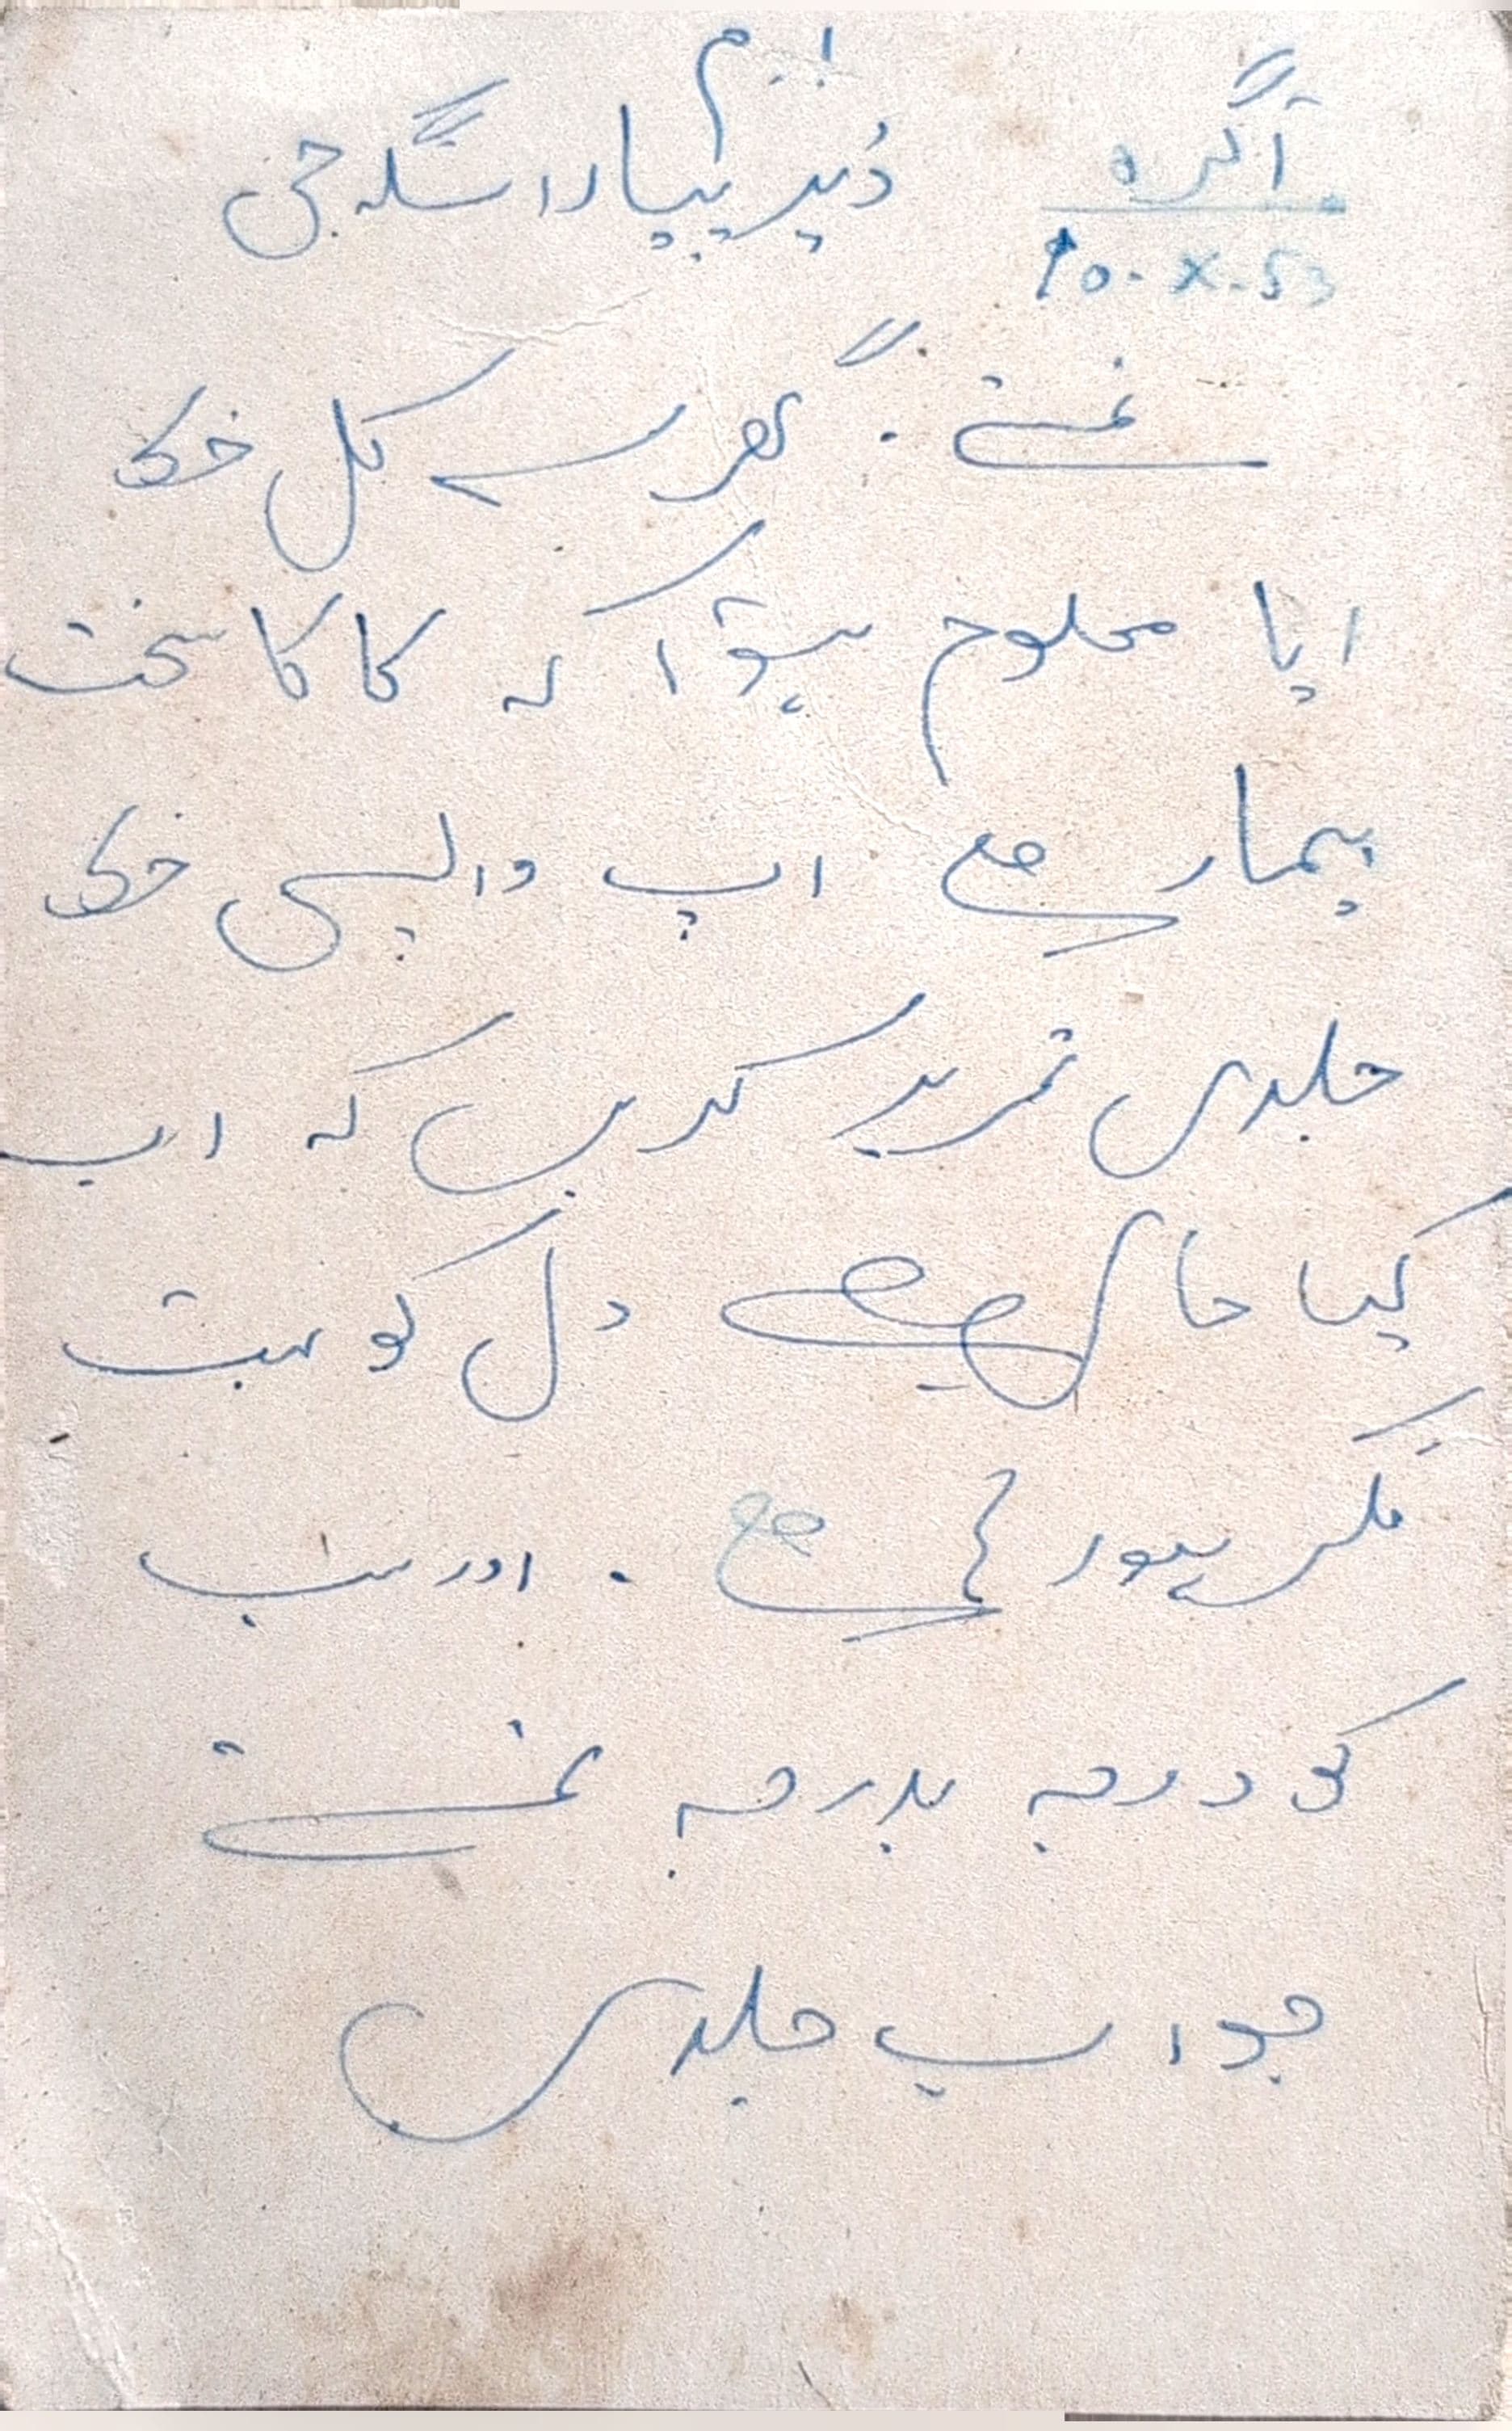 اوم
آگرہ
10-X-53
ڈیر پیارا سنگھ جی
نمستے . گھر سے کل خط
ایا معلوم ہوا کہ کاکا سخت
بیمار ہے اپ واپسی خط
جلدی تحریر کریں کہ اب
کیا حال ہے دل کو بہت
فکر ہو رہا ہے . اور سب
کو درجہ بدرجہ نمستے
جواب جلدی